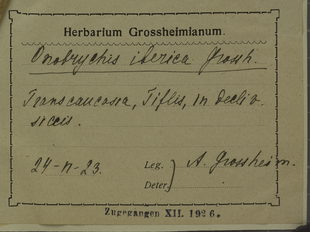 Herbarium Grossheimianum.
Onobrychis iberica Grossh.
Transcaucasia, Tiflis, in decliv.
siccis.
24-V-23. Leg. A. Grossheim.
Deter.
Zugegangen XII. 1926.